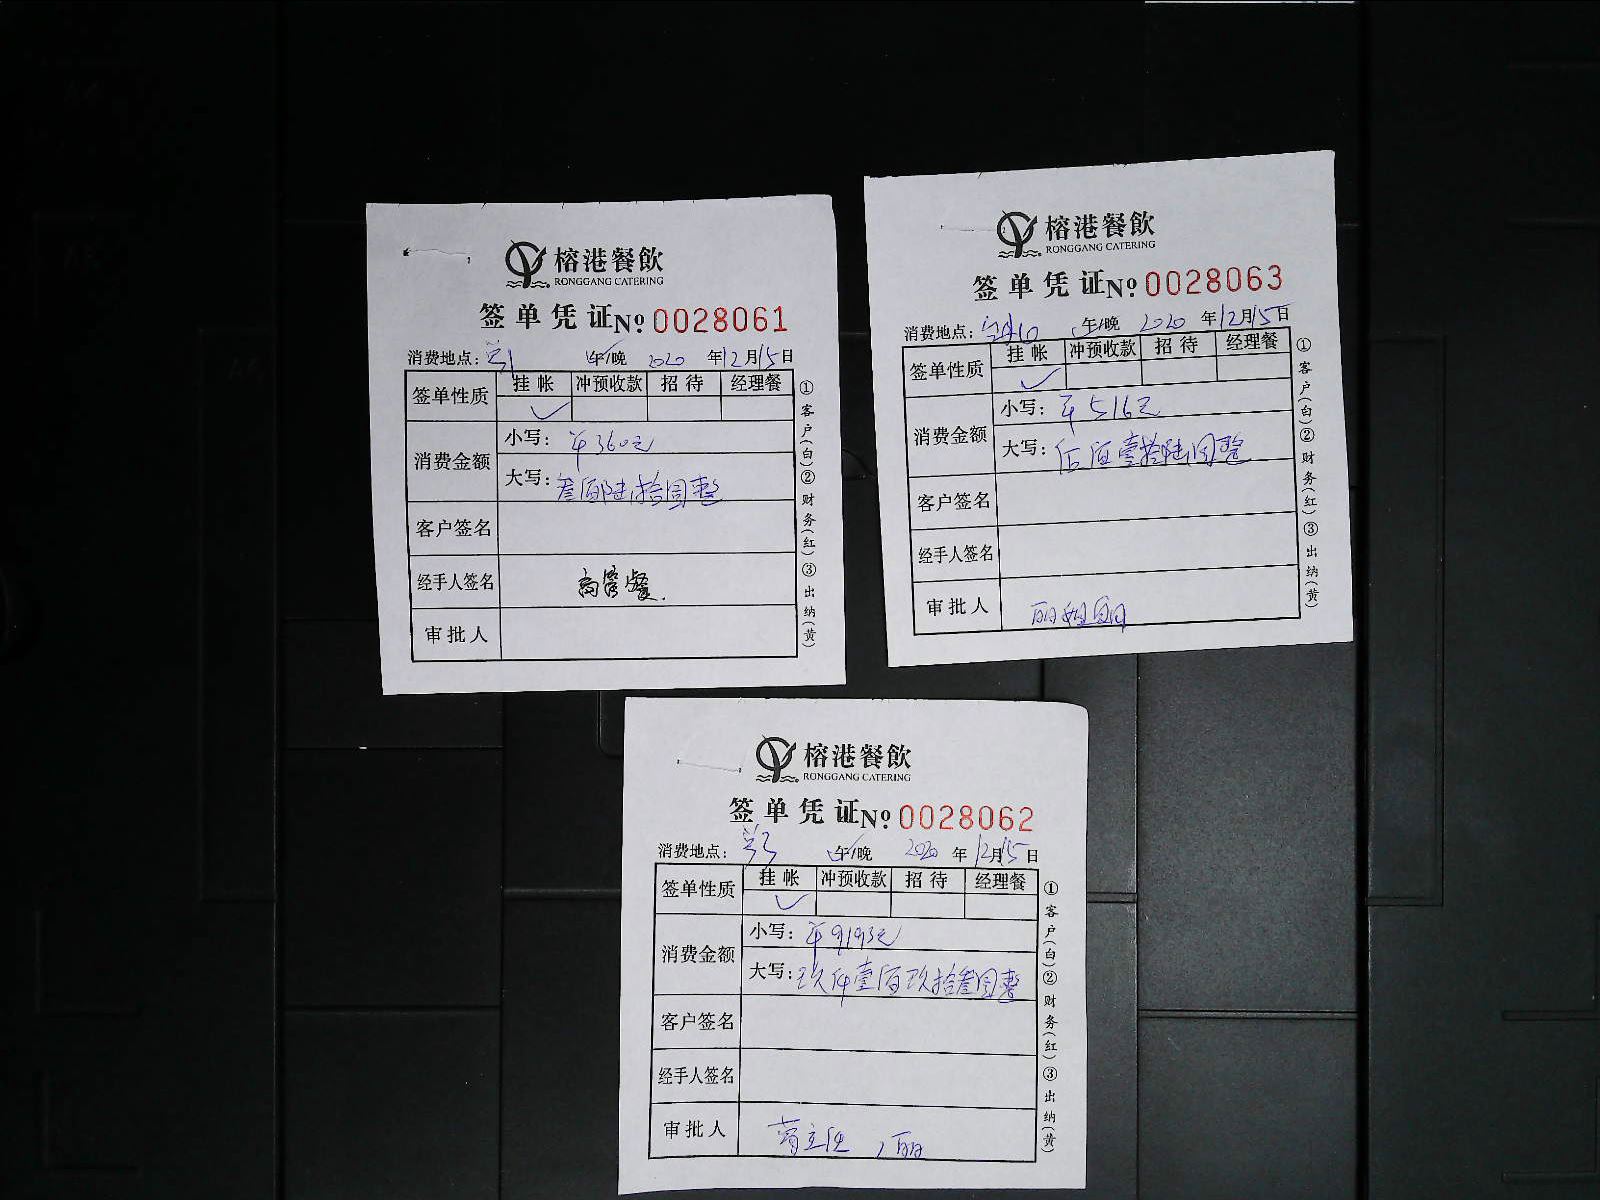 榕港餐飲
RONGGANG CATERING
签单凭证№ 0028061
消费地点： 午/晚 2020 年12月15日
签单性质 挂帐 ✓ 冲预收款 招待 经理餐
消费金额
小写：￥360元
大写：叁佰陆拾圆整
客户签名
经手人签名 高管餐.
审批人
①客户(白)②财务(红)③出纳(黄)
榕港餐飲
RONGGANG CATERING
签单凭证№ 0028063
消费地点： 午/晚 2020 年12月15日
签单性质 挂帐 ✓ 冲预收款 招待 经理餐
消费金额
小写：￥516元
大写：伍佰壹拾陆圆整
客户签名
经手人签名
审批人 丽姐
①客户(白)②财务(红)③出纳(黄)
榕港餐飲
RONGGANG CATERING
签单凭证№ 0028062
消费地点： 午/晚 2020 年12月15日
签单性质 挂帐 ✓ 冲预收款 招待 经理餐
消费金额
小写：￥9193元
大写：玖仟壹佰玖拾叁圆整
客户签名
经手人签名
审批人 主任 丽
①客户(白)②财务(红)③出纳(黄)